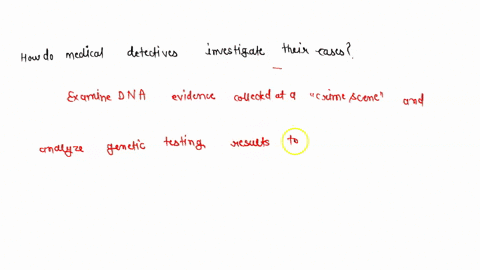 How do medical detectives investigate their cases?
Examine DNA evidence collected at a "crime scene" and
analyze genetic testing results to